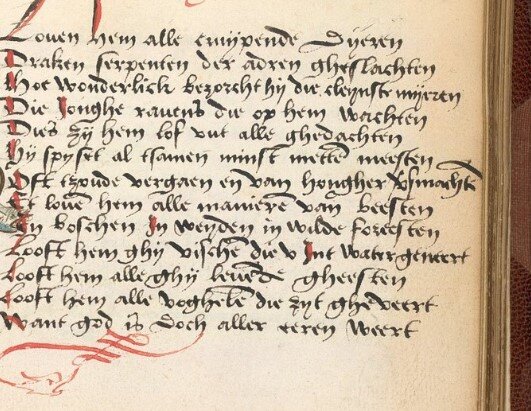 Louen hem alle cruypende Dyeren
Draken serpenten der adren gheslachten
Hoe wonderlick bezorcht hy die cleynste myeren
Die Jonghe rauens die op hem wachten
Dies zy hem lof vut alle ghedachten
Hy spyset al tsamen minst metten meesten
Oft tzoude vergaen en van hongher vsmachtē
Et louē hem alle manierē van beesten
In boschen In weyden in wilde foreesten
Looft hem ghy visschē die v Int water gheneert
Looft hem alle ghy leuēde gheesten
Looft hem alle voghelē die zyt gheveert
Want god is doch aller eeren weert